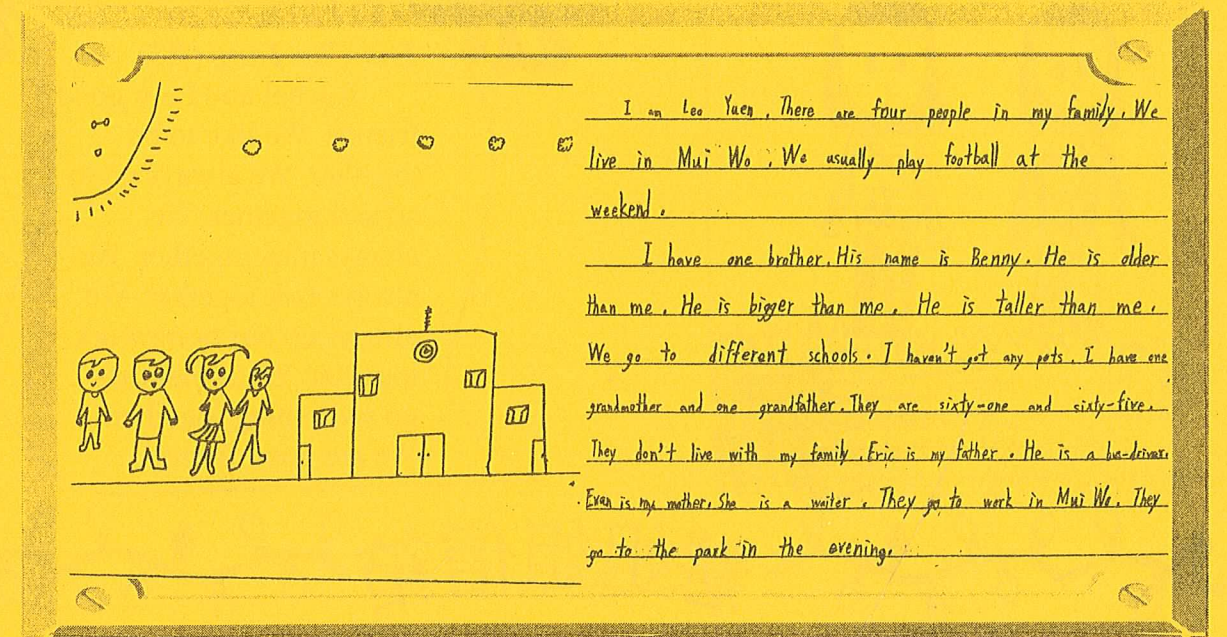 I am Leo Yuen. There are four people in my family. We
live in Mui Wo. We usually play football at the
weekend.
I have one brother. His name is Benny. He is older
than me. He is bigger than me. He is taller than me.
We go to different schools. I haven't got any pets. I have one
grandmother and one grandfather. They are sixty-one and sixty-five.
They don't live with my family. Eric is my father. He is a bus-driver.
Evan is my mother. She is a waiter. They go to work in Mui Wo. They
go to the park in the evening.